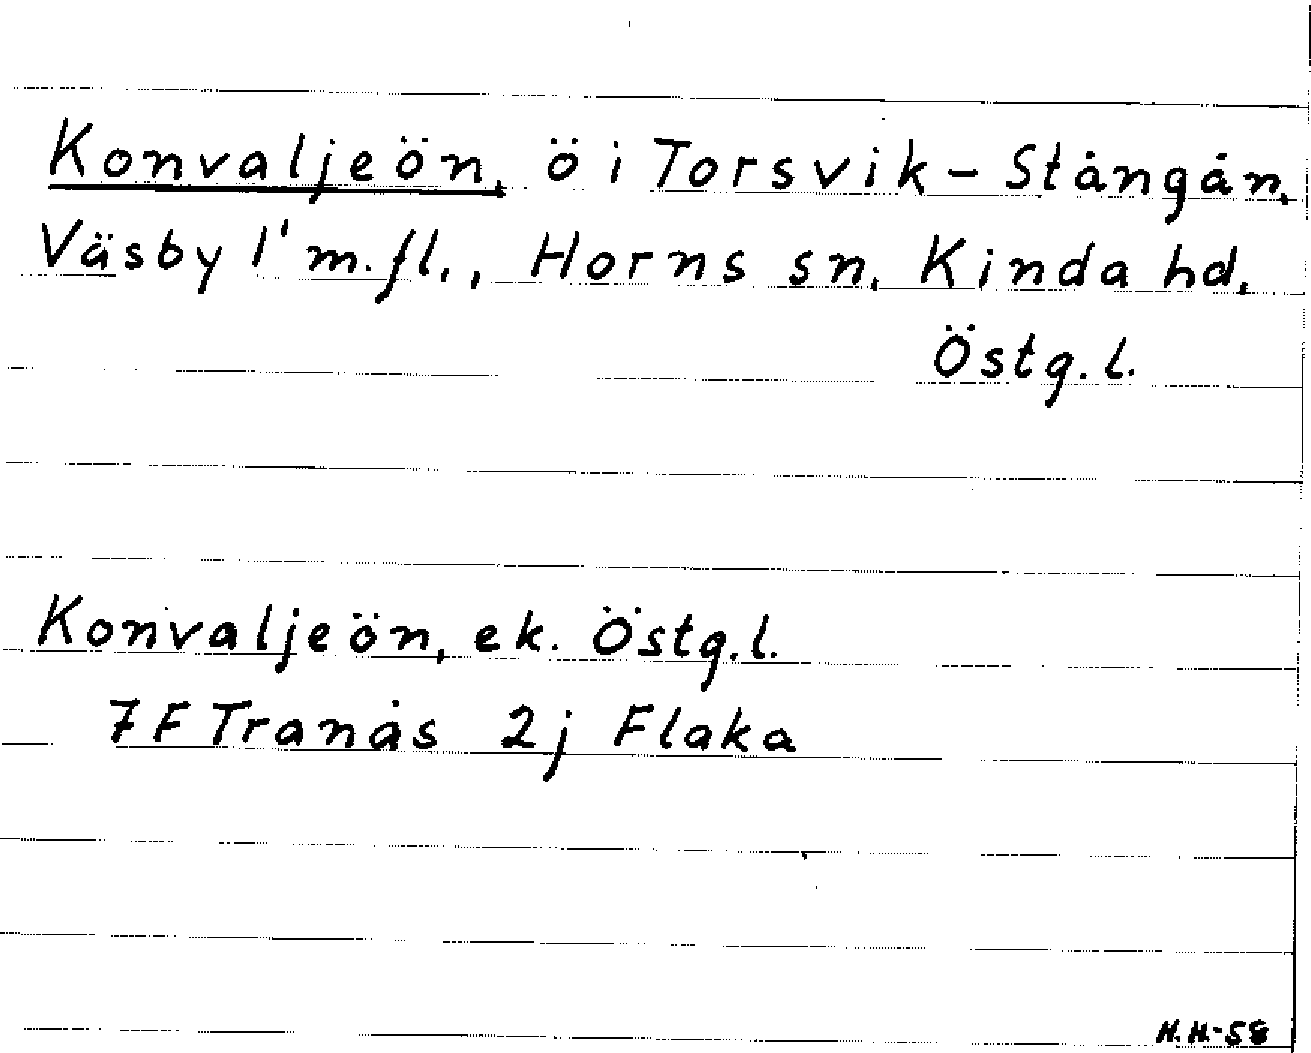 Konvaljeön, ö i Torsvik - Stångån,
Väsby 1' m.fl., Horns sn, Kinda hd,
Östg. l.
Konvaljeön, ek. Östg. l.
7F Tranås 2j Flaka
H.H-58